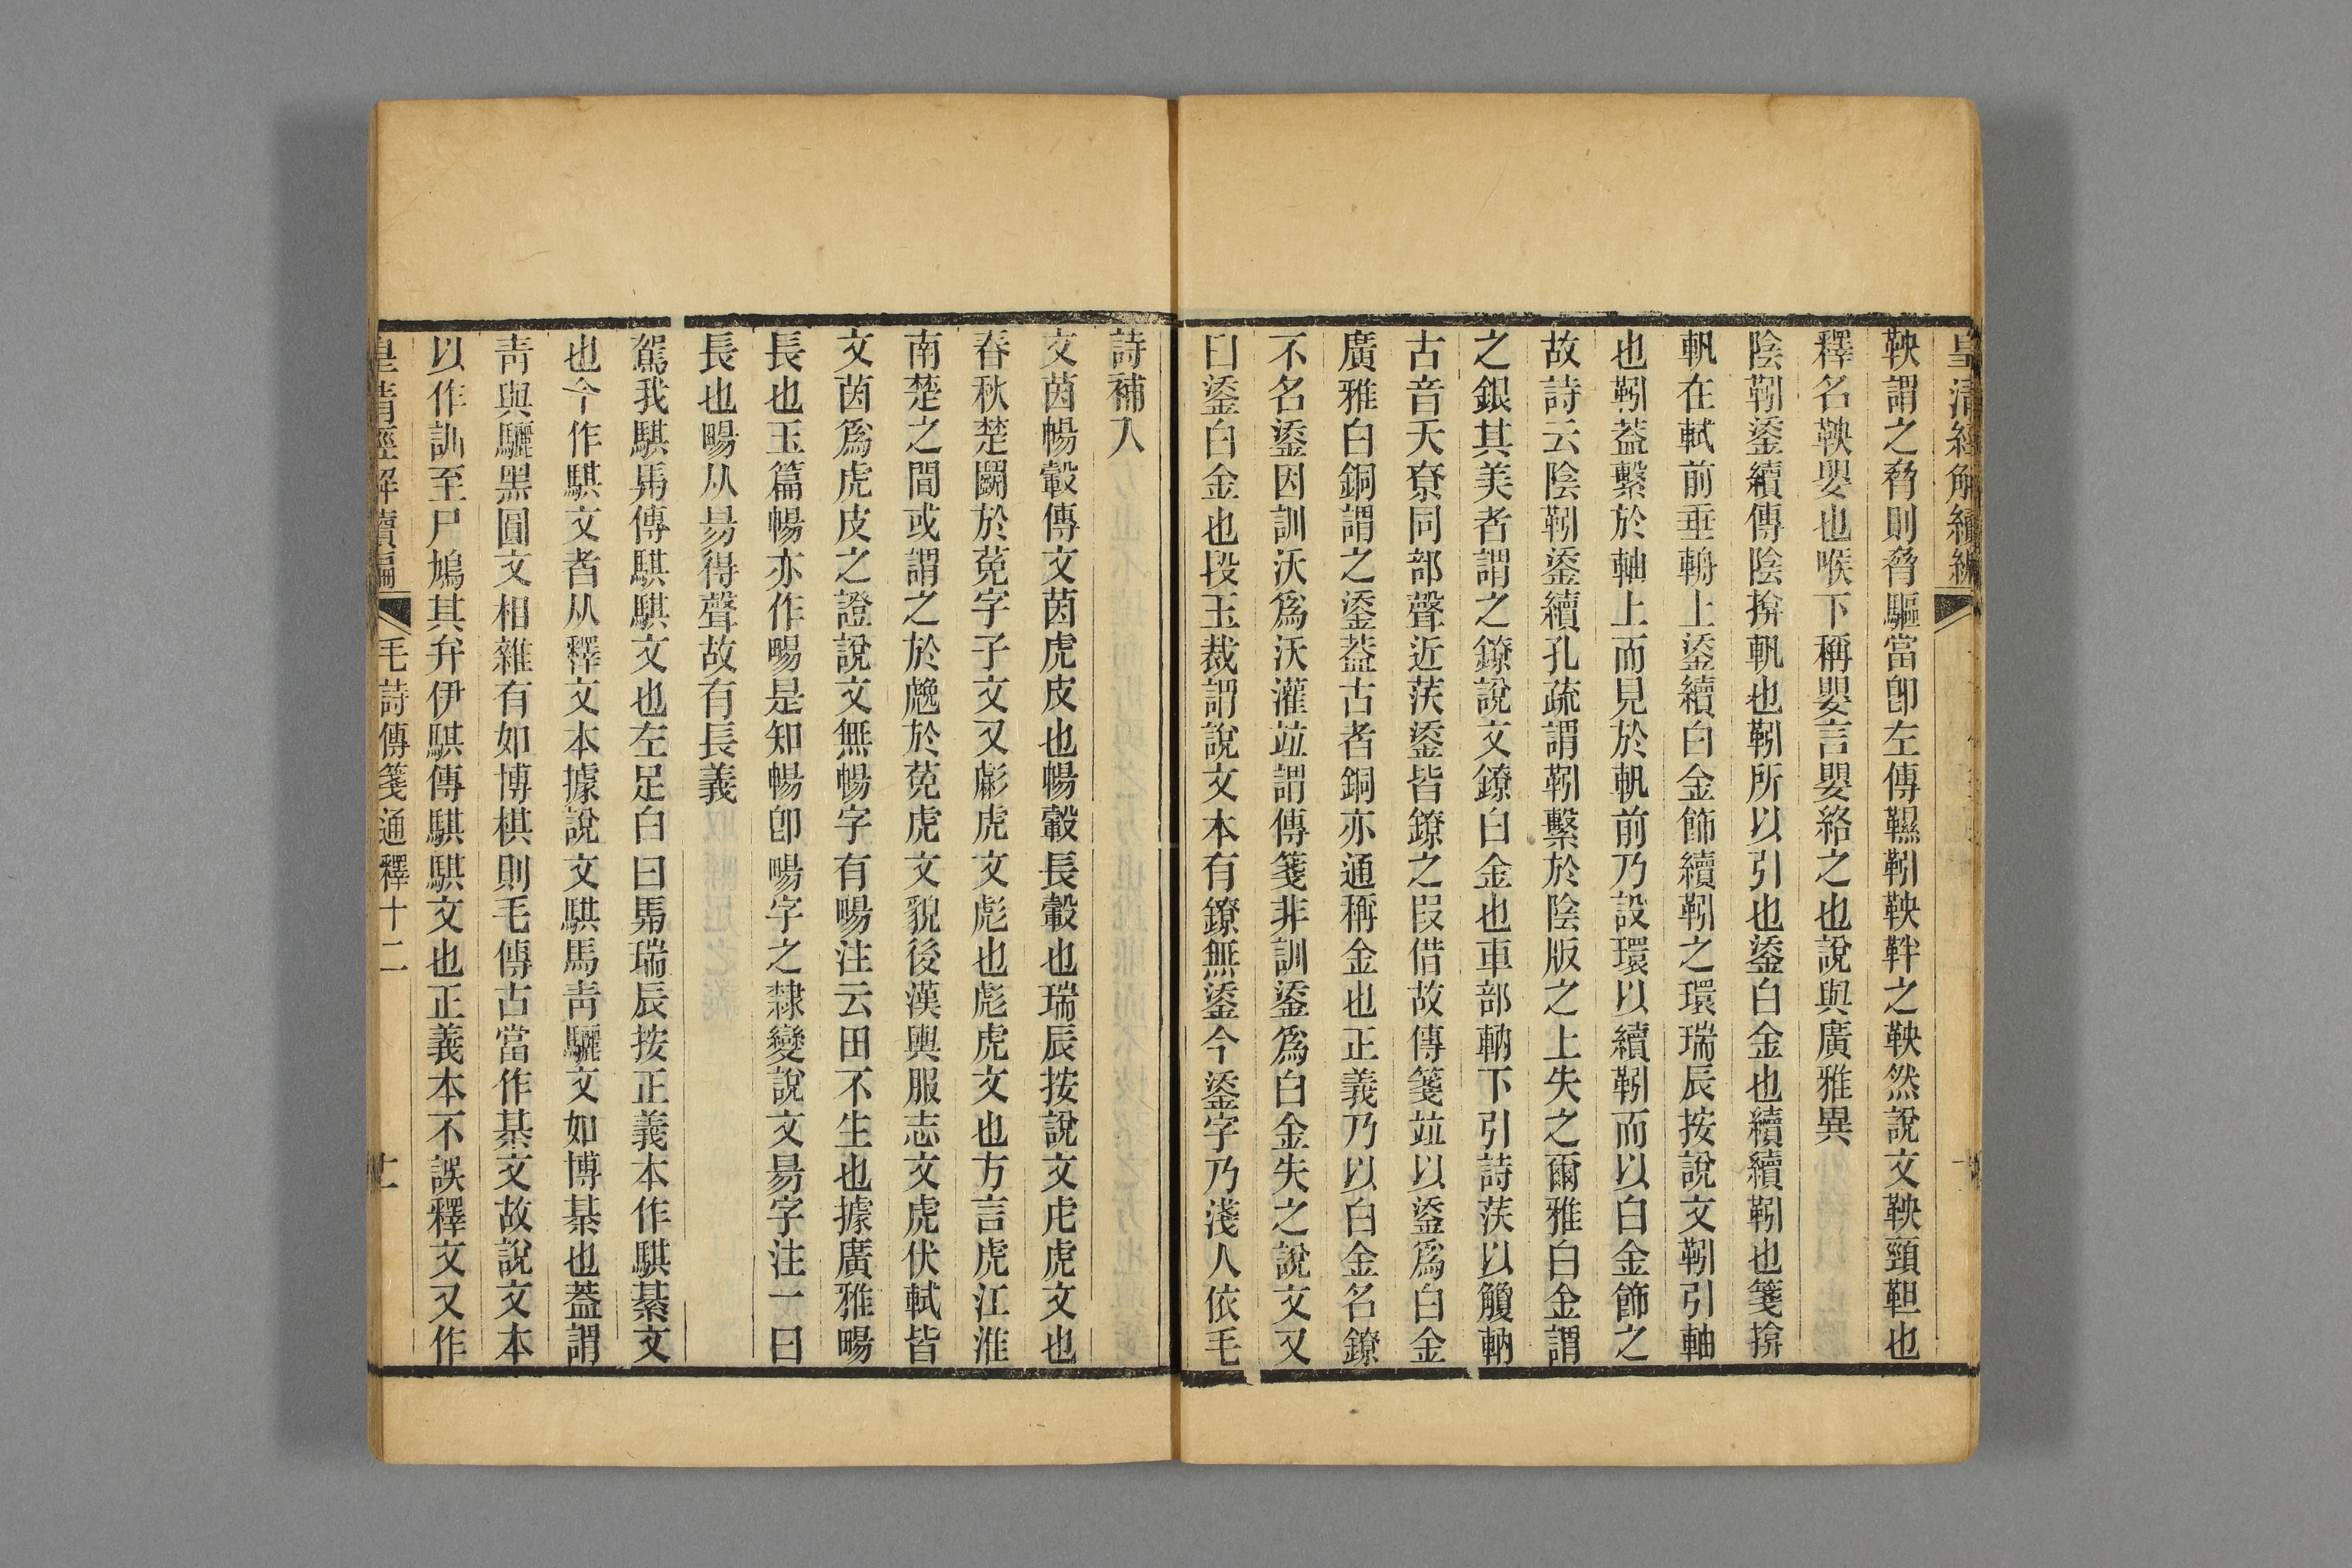 皇清經解續編
鞅謂之脅則脅驅當卽左傳韅靷鞅靽之鞅然說文鞅頸靼也
釋名鞅嬰也喉下稱嬰言嬰絡之也說與廣雅異
陰靷鋈續傳陰揜軓也靷所以引也鋈白金也續續靷也箋揜
軓在軾前垂輈上鋈續白金飾續靷之環瑞辰按說文靷引軸
也靷葢繫於軸上而見於軓前乃設環以續靷而以白金飾之
故詩云陰靷鋈續孔疏謂靷繫於陰版之上失之爾雅白金謂
之銀其美者謂之鐐說文鐐白金也車部軜下引詩𦯄以觼軜
古音夭尞同部聲近𦯄鋈皆鐐之叚借故傳箋竝以鋈爲白金
廣雅白銅謂之鋈葢古者銅亦通稱金也正義乃以白金名鐐
不名鋈因訓沃爲沃灌竝謂傳箋非訓鋈爲白金失之說文又
曰鋈白金也段玉裁謂說文本有鐐無鋈今鋈字乃淺人依毛
詩補入
文茵暢轂傳文茵虎皮也暢轂長轂也瑞辰按說文虍虎文也
春秋楚鬭於莵字子文又彪虎文彪也彪虎文也方言虎江淮
南楚之間或謂之於䖘於莵虎文貌後漢輿服志文虎伏軾皆
文茵爲虎皮之證說文無暢字有畼注云田不生也據廣雅畼
長也玉篇暢亦作畼是知暢卽畼字之隸變說文昜字注一曰
長也畼从昜得聲故有長義
駕我騏馵傳騏騏文也左足白曰馵瑞辰按正義本作騏綦文
也今作騏文者从釋文本據說文騏馬靑驪文如博棊也葢謂
靑與驪黑圓文相雜有如博棋則毛傳古當作綦文故說文本
以作訓至尸鳩其弁伊騏傳騏騏文也正義本不誤釋文又作
皇清經解續編 毛詩傳箋通釋十二 十一